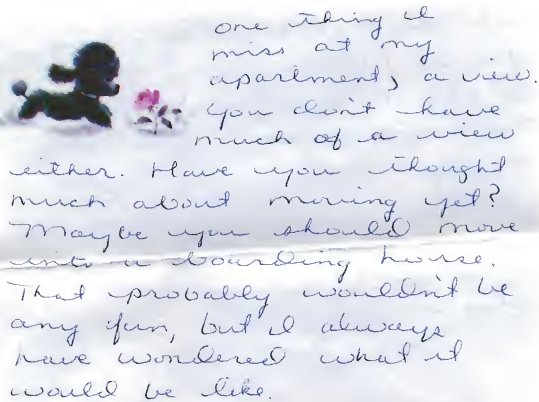 one thing I
miss at my
apartment, a view.
You don't have
much of a view
either. Have you thought
much about moving yet?
Maybe you should move
into a boarding house.
That probably wouldn't be
any fun, but I always
have wondered what it
would be like.